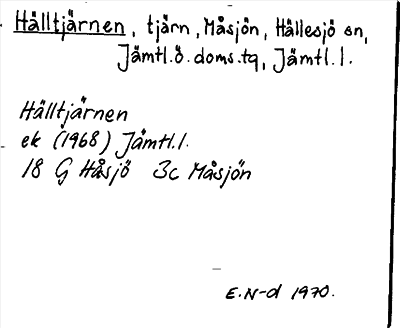 Hålltjärnen, tjärn, Måsjön, Hällesjö sn,
Jämtl.ö.doms.tq, Jämtl.l.
Hålltjärnen
ek (1968) Jämtl.l.
18 G Håsjö 3c Måsjön
E.N-d 1970.